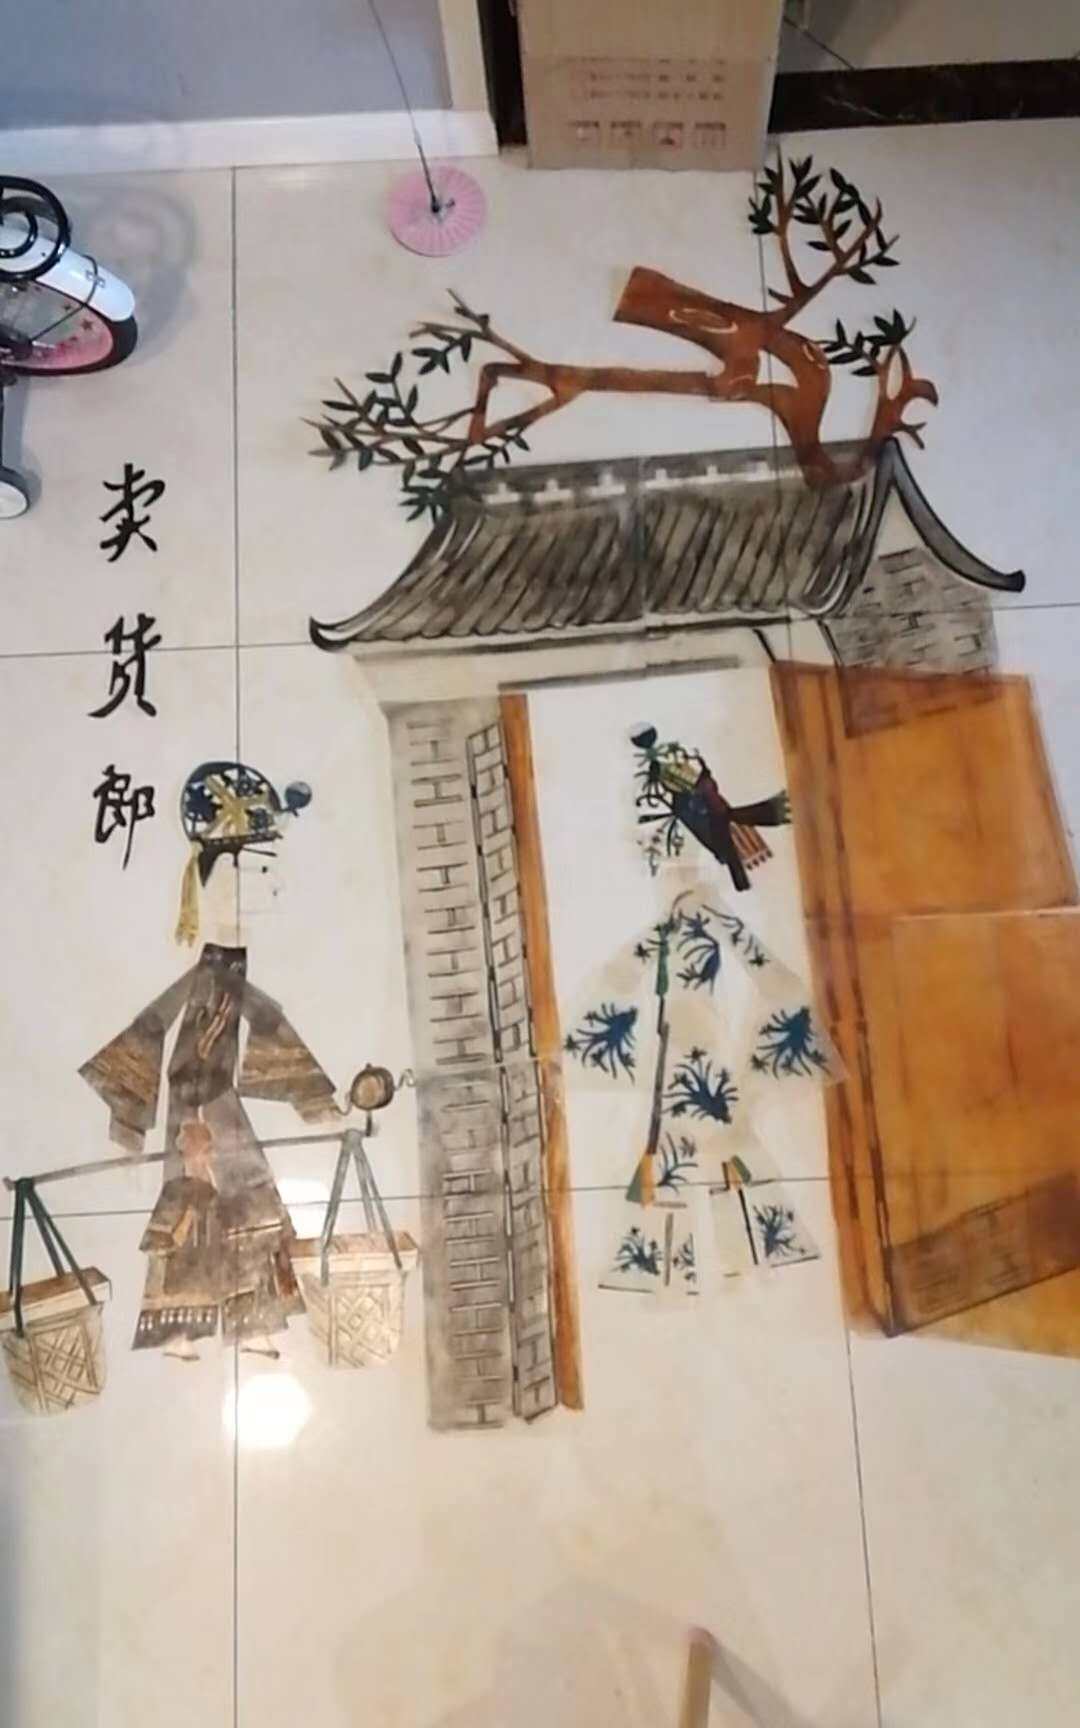 卖货郎